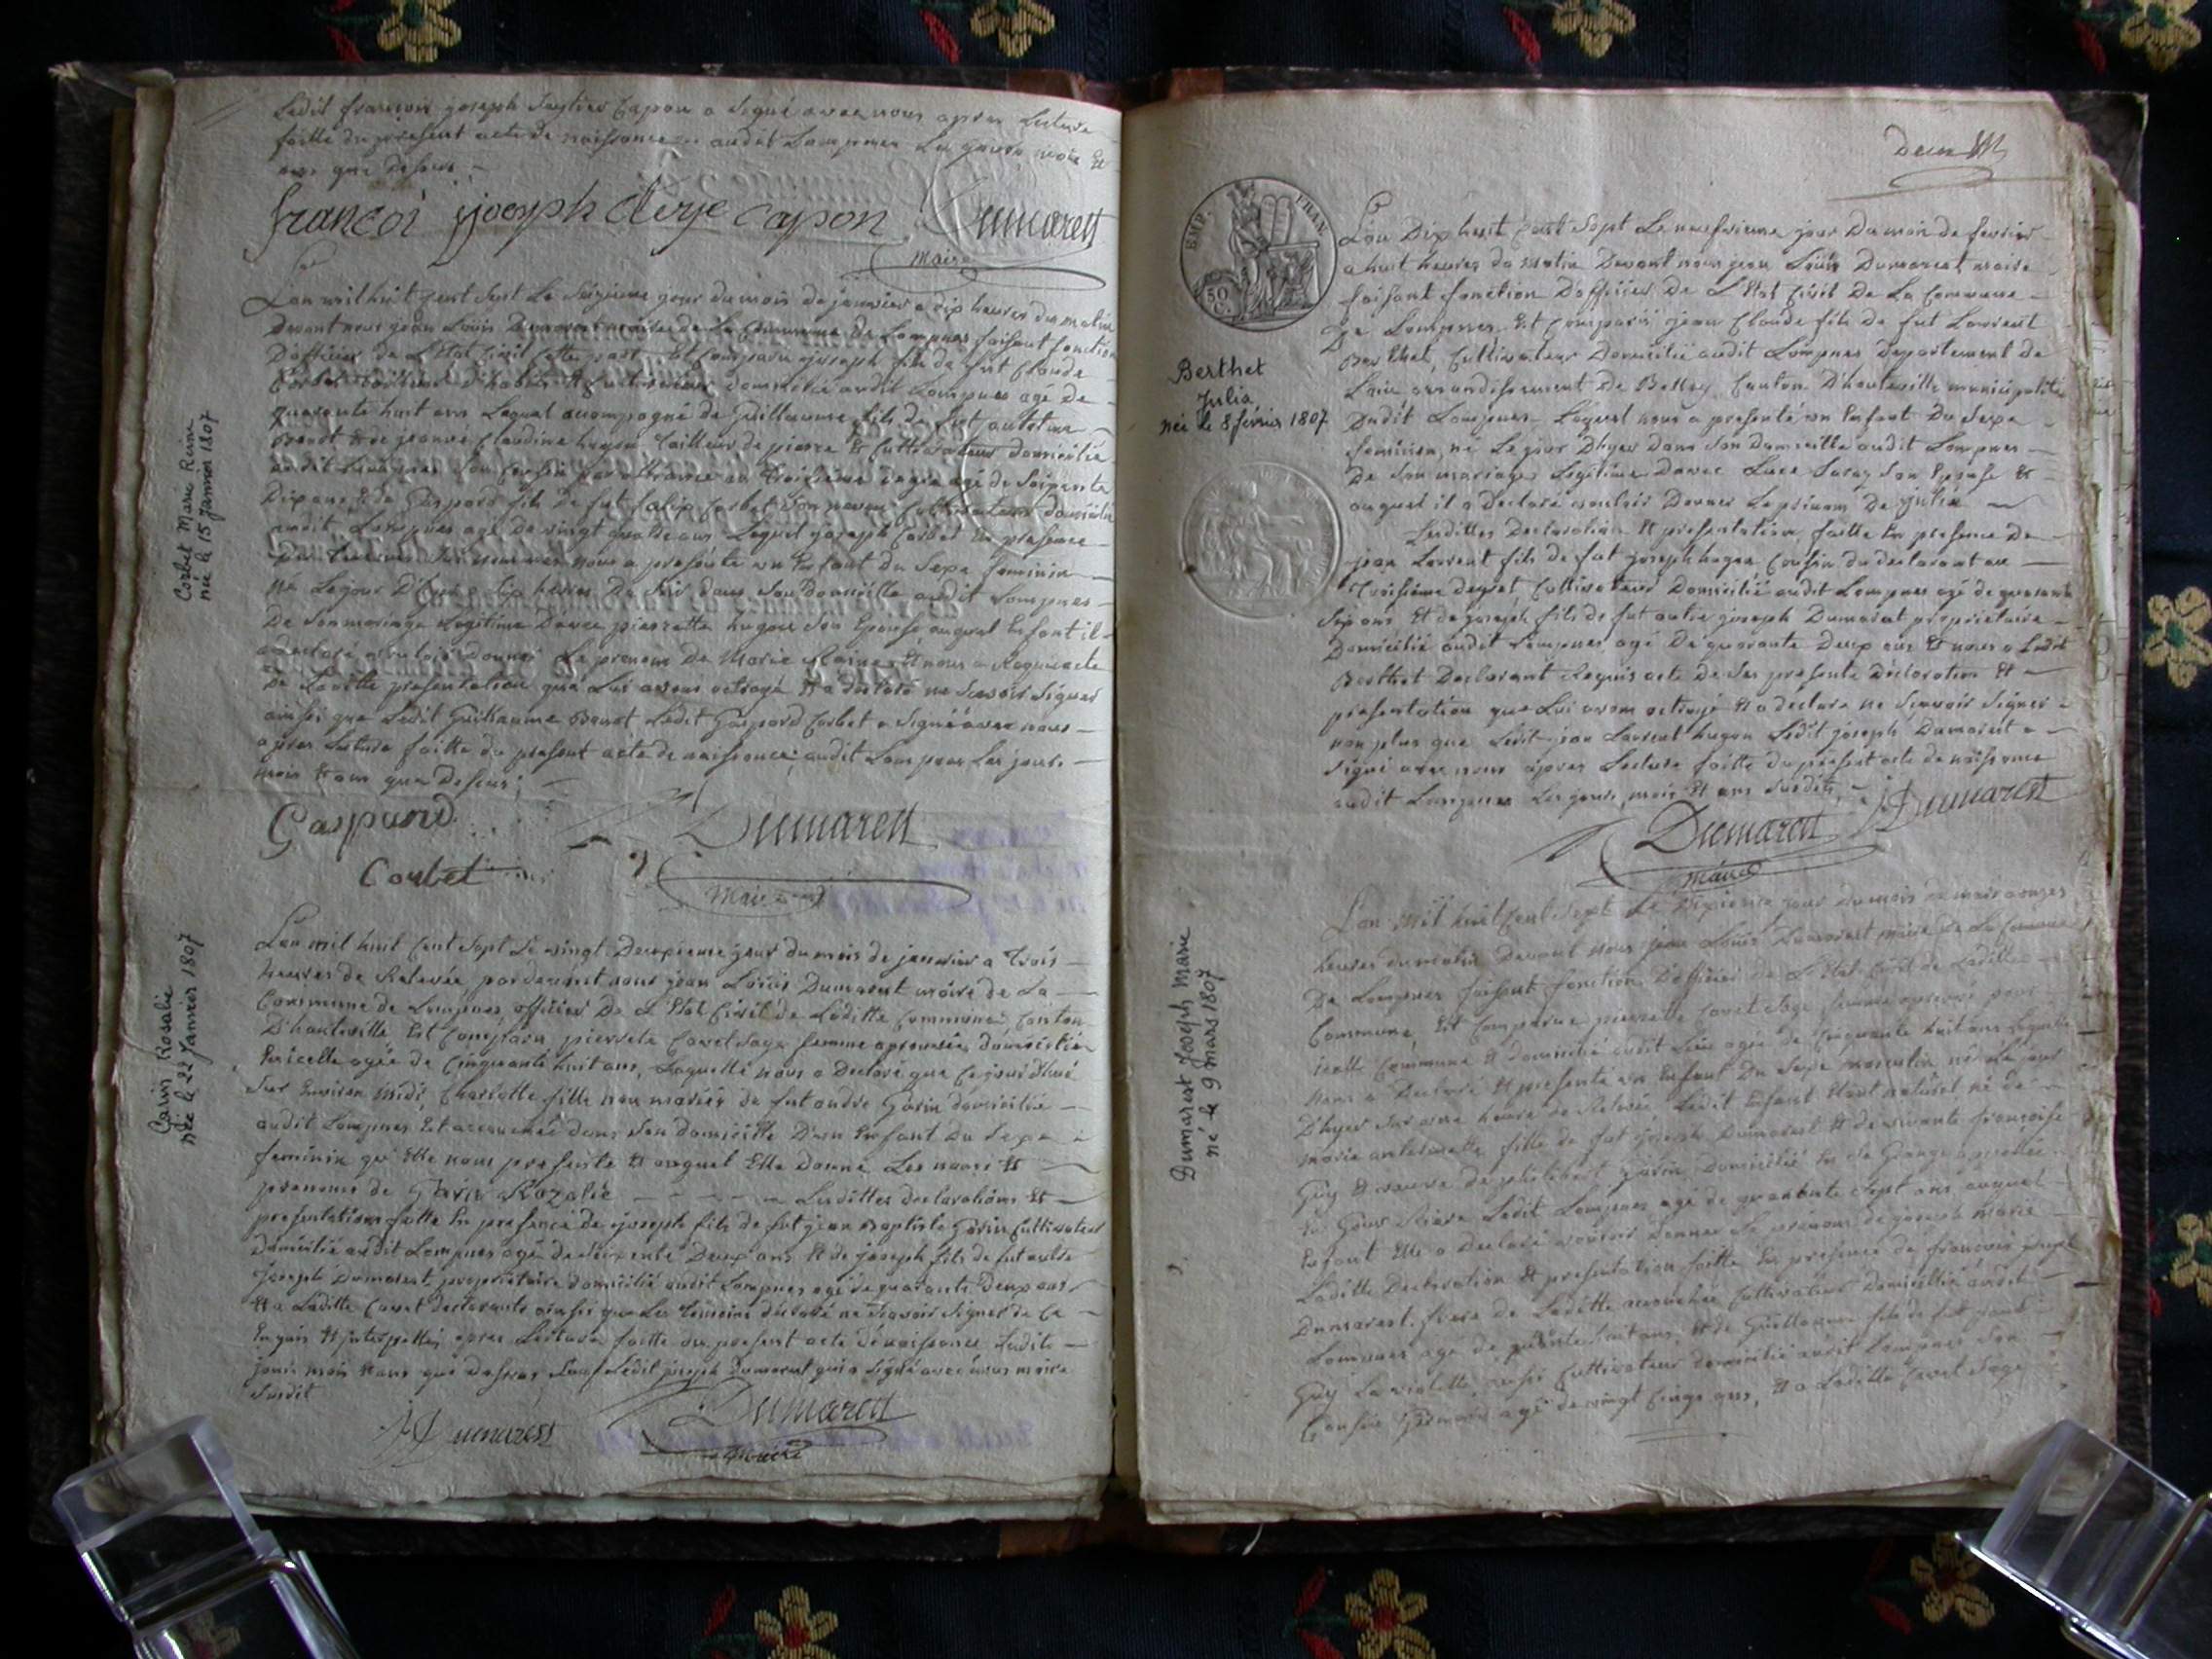 Ledit francois joseph Capon a signé avec nous apres Lecture
faitte du present acte de naissance audit Lompnes Les jours mois Et
ans que dessus
francoi joseph Capon Dumarest
maire
Corbet Marie Reine
née le 15 janvier 1807
Lan mil huit Cent Sept Le Seizieme jour du mois de janvier a dix heures du matin
Devant nous jean Louis Dumarest maire de La Commune de Lompnes faisant fonction
Dofficier de LEtat Civil Est Comparu joseph fils de fut Claude
Corbet Cultivateur domicilié audit Lompnes agé de
quarante huit ans Lequel accompagné de Guillaume fils de fut
Benot Et de jeanne Claudine hugon tailleur de pierre Et Cultivateur domicilié
audit Lompnes Son Cousin par alliance au troisieme degré agé de Soixante
Dix ans Et de Gaspard fils De fut Corbet Son neveu Cultivateur domicilié
audit Lompnes agé de vingt quatre ans Lequel joseph Corbet En presence
nous a presenté un Enfant du Sexe feminin
né Le jour Dhyer a Six heures Du Soir dans Son Domicille audit Lompnes
De Son mariage Legitime Davec pierrette hugon Son Epouse auquel Enfant il
a declaré vouloir donner Le prenom De Marie Raine Et nous a Requis acte
De Laditte presentation que Lui avons octroyé Et a declaré ne Scavoir Signer
ainsi que Ledit Guillaume Benot Ledit Gaspard Corbet a Signé avec nous
apres Lecture faitte du present acte de naissance audit Lompnes Les jours
mois Et ans que Dessus
Gaspard Dumarest
Corbet maire
Garin Rosalie
née le 22 janvier 1807
Lan mil huit Cent Sept Le vingt Deuxieme jour du mois de janvier a trois
heures de Relevée pardevant nous jean Louis Dumarest maire de La
Commune de Lompnes officier De LEtat Civil de Laditte Commune Canton
Dhauteville Est Comparu pierrete Cavet Sage femme aprouvée domiciliée
En icelle agée de Cinquante huit ans, Laquelle nous a Declaré que Ce jourdhuÿ
Sur Environ Midi, Charlotte fille non mariée de fut andre Garin domiciliée
audit Lompnes Est accouchée dans Son domicille Dun Enfant Du Sexe
feminin qu'Elle nous presente Et auquel Elle donne Les noms Et
prenoms de Garin Rozalie Lesdittes declarations Et
presentations faitte En presence de joseph fils de fut jean Baptiste Garin Cultivateur
domicilié audit Lompnes agé de Soixante Deux ans Et de joseph fils de fut autre
joseph Dumarest propriétaire domicilié audit Lompnes agé de quarante deux ans
Et a Laditte Cavet declarante ainsi que Les temoins declaré ne Scavoir Signer de Ce
Enquis Et interpellés apres Lecture faitte du present acte de naissance Ledit
jours mois Et ans que dessus Sauf Ledit joseph Dumarest qui a Signé avec nous maire
Susdit
JDumarest Dumarest
maire
deux
EMP. FRAN.
50 C.
Berthet
Julia
née le 8 février 1807
Lan Dix huit Cent Sept Le neufvieme jour Du mois de fevrier
a huit heures du Matin Devant nous jean Louis Dumarest maire
faisant fonction Dofficier De LEtat Civil De La Commune
De Lompnes Est Comparu jean Claude fils de fut Laurent
Berthet, Cultivateur Domicilié audit Lompnes Departement de
Lain arrondissement De Belley Canton Dhauteville municipalité
Dudit Lompnes Lequel nous a presenté un Enfant Du Sexe
feminin né Le jour Dhyer dans Son Domicille audit Lompnes
De Son mariage Legitime Davec Luce Son Epouse Et
auquel il a Declaré vouloir Donner Le prenom De Julia
Lesdittes Declaration Et presentation faitte En presence De
jean Laurent fils de fut joseph hugon Cousin du declarant au
Troisieme Degret Cultivateur Domicilié audit Lompnes agé de quarante
Six ans Et de joseph fils de fut autre joseph Dumarest proprietaire
Domicilié audit Lompnes agé De quarante Deux ans Et nous a Ledit
Berthet Declarant Requis acte De Ses presente Declaration Et
presentation que Lui avons octroyé Et a declaré ne Scavoir Signer
non plus que Ledit jean Laurent hugon Ledit joseph Dumarest a
Signé avec nous apres Lecture faitte du present acte de naissance
audit Lompnes Les jours, mois Et ans Susdits
Dumarest JDumarest
maire
Dumarest Joseph Marie
né le 9 mars 1807
Lan Mil huit Cent Sept Le Dixieme jour Du mois de mars a onzes
heures du matin Devant nous jean Louis Dumarest maire De La Commune
De Lompnes faisant fonction Dofficier de LEtat Civil de Laditte
Commune, Est Comparue pierrette Cavet Sage femme aprouvée pour
icelle Commune Et domicilié audit Lieu agée de Cinquante huit ans Laquelle
nous a Declaré Et presenté un Enfant Du Sexe masculin né Le jour
Dhyer Sur une heure de Relevée, Ledit Enfant Etant naturel né de
Marie antoinette fille de fut joseph Dumarest Et de vivante françoise
Guy Et veuve de philibert Garin Domicilié En La Grange appellée
Ledit Lompnes agé de quarante Sept ans auquel
Enfant Elle a Declaré vouloir Donner Le prénom de joseph Marie
Laditte Declaration Et presentation faitte En presence de francois joseph
Dumarest frere de Laditte accouchée Cultivateur Domicillié audit
Lompnes agé de Et de Guillaume fils de fut
Guy La violette, aussi Cultivateur domicilié audit Lompnes Son
Cousin Germain agé de vingt Cinq ans, Et a Laditte Cavet Sage